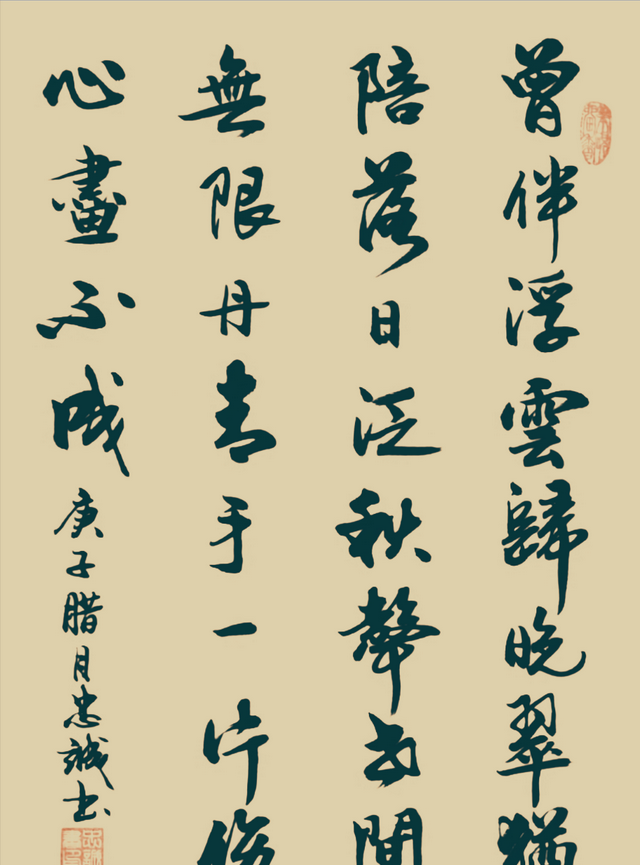 曾伴浮雲歸晚翠猶
陪落日泛秋聲世間
無限丹青手一片傷
心畫不成
庚子腊月忠誠书